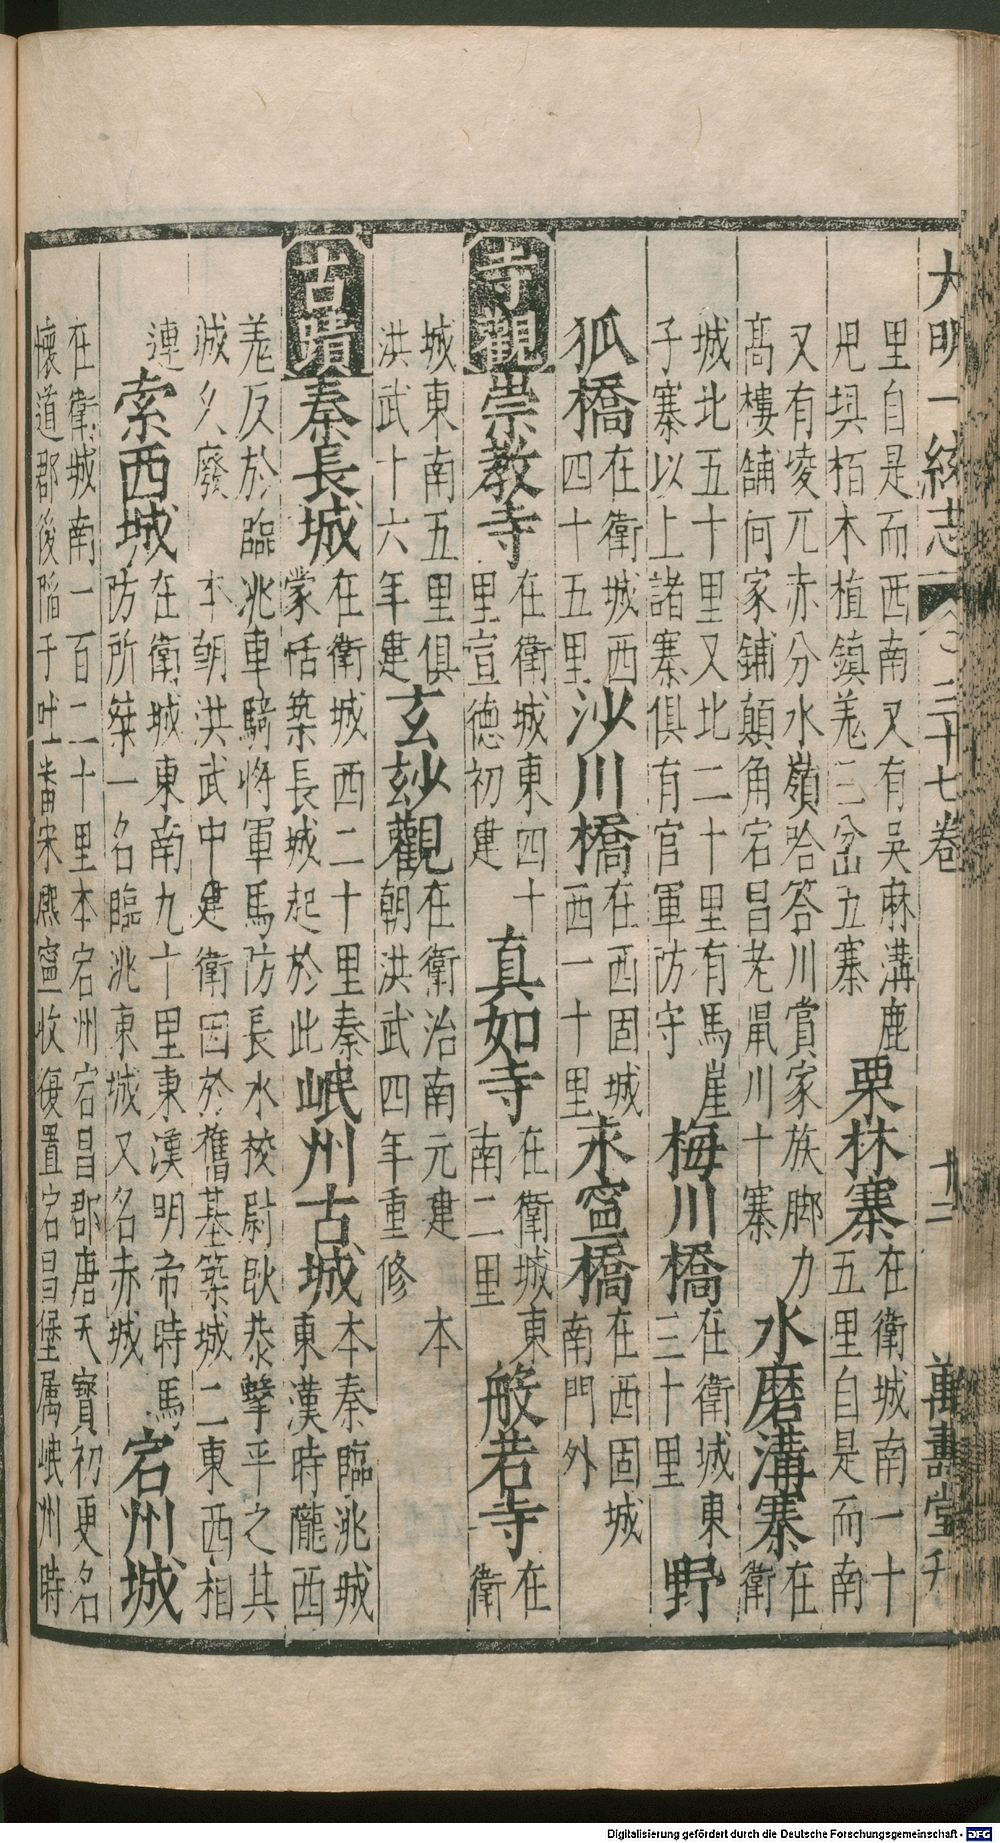 大明一統志 三十七卷 十二 萬壽堂刊
里自是而西南又有吳麻溝鹿
兕埧栢木植鎮羗三岔五寨
栗林寨
在衛城南一十
五里自是而南
又有凌兀赤分水嶺哈答川賞家族脚力
高樓舖何家鋪顛角宕昌老鼠川十寨
水磨溝寨
在
衛
城北五十里又北二十里有馬崖
子寨以上諸寨俱有官軍防守
梅川橋
在衛城東
三十里
野
狐橋
在衛城西
四十五里
沙川橋
在西固城
西一十里
永寧橋
在西固城
南門外
寺觀
崇教寺
在衛城東四十
里宣德初建
真如寺
在衛城東
南二里
般若寺
在
衛
城東南五里俱
洪武十六年建
玄玅觀
在衛治南元建 本
朝洪武四年重修
古蹟
秦長城
在衛城西二十里秦
蒙恬築長城起於此
岷州古城
本秦臨洮城
東漢時隴西
羗反於臨洮車騎將軍馬防長水校尉耿恭擊平之其
城久廢 本朝洪武中建衛因於舊基築城二東西相
連
索西城
在衛城東南九十里東漢明帝時馬
防所築一名臨洮東城又名赤城
宕州城
在衛城南一百二十里本宕州宕昌郡唐天寶初更名
懷道郡後陷于吐蕃宋熙寧收復置宕昌堡属岷州時
Digitalisierung gefördert durch die Deutsche Forschungsgemeinschaft - DFG